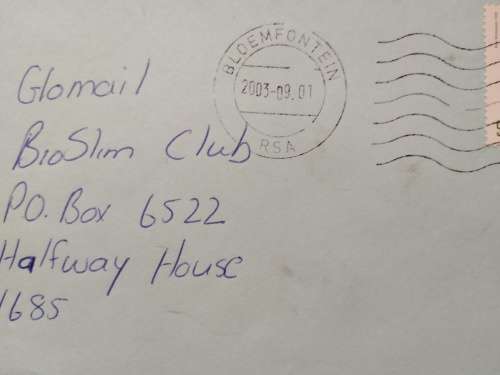 Glomail
BioSlim Club
P.O. Box 6522
Halfway House
1685
BLOEMFONTEIN
2003-09.01
RSA